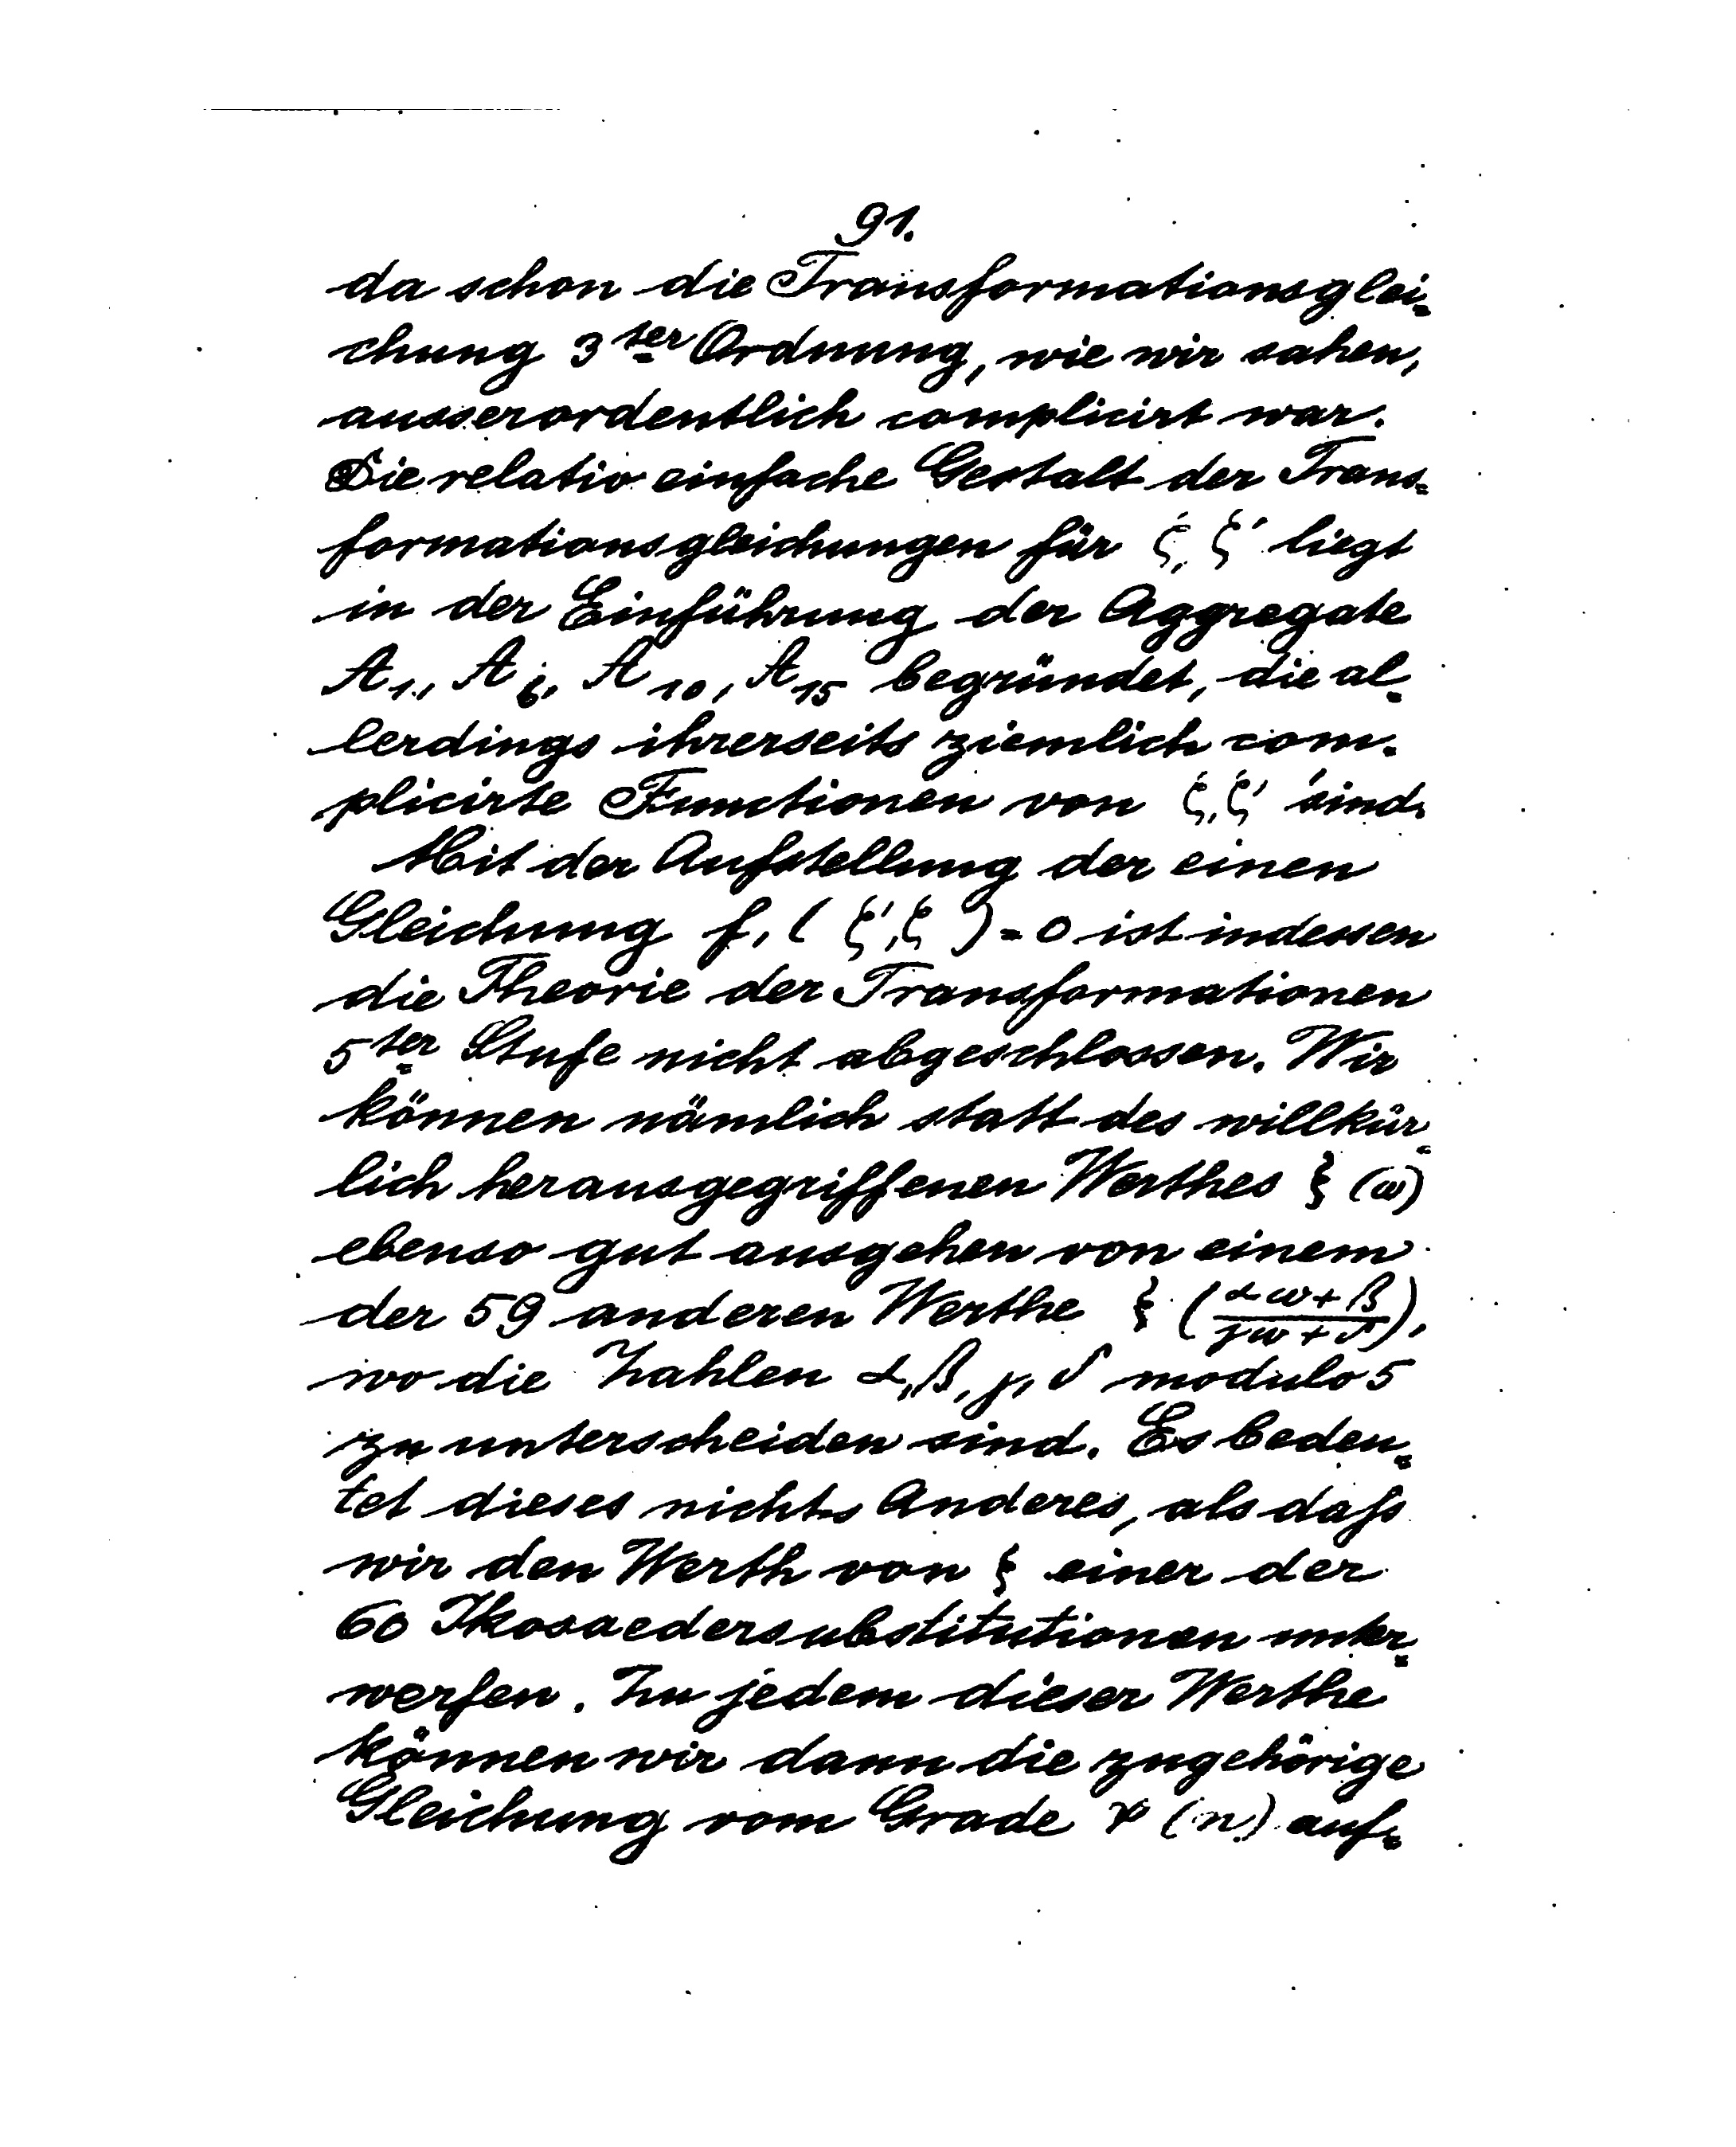 91.
da schon die Transformationsglei-
chung 3ter Ordnung, wie wir sahen,
ausserordentlich complicirt war.
Die relativ einfache Gestalt der Trans-
formationsgleichungen für ζ, ζ' liegt
in der Einführung der Aggregate
A₁, A₆, A₁₀, A₁₅ begründet, die al-
lerdings ihrerseits ziemlich com-
plicirte Functionen von ζ, ζ' sind.
Mit der Aufstellung der einen
Gleichung f, (ζ', ζ) = 0 ist indessen
die Theorie der Transformationen
5ter Stufe nicht abgeschlossen. Wir
können nämlich statt des willkür-
lich herausgegriffenen Werthes ξ (ω)
ebenso gut ausgehen von einem
der 59 anderen Werthe ξ ((αω+β)/(γω+δ)),
wo die Zahlen α, β, γ, δ modulo 5
zu unterscheiden sind. Es bedeu-
tet dieses nichts Anderes, als daſs
wir den Werth von ξ einer der
60 Ikosaedersubstitutionen unter-
werfen. Zu jedem dieser Werthe
können wir dann die zugehörige
Gleichung vom Grade ψ (n) auf-